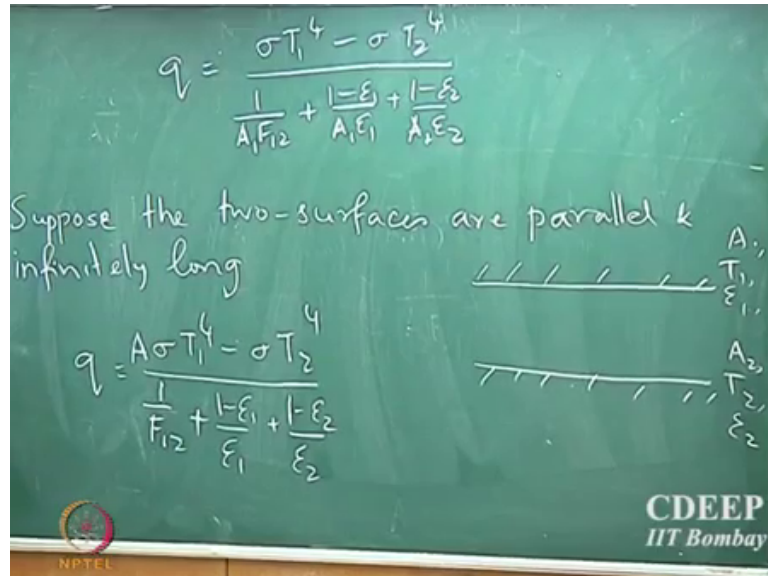 q = σT₁⁴ − σT₂⁴ / (1/A₁F₁₂ + 1−ε₁/A₁ε₁ + 1−ε₂/A₂ε₂)
Suppose the two-surfaces are parallel &
infinitely long
A₁,
T₁,
ε₁,
q = AσT₁⁴ − σT₂⁴ / (1/F₁₂ + 1−ε₁/ε₁ + 1−ε₂/ε₂)
A₂,
T₂,
ε₂
NPTEL
CDEEP
IIT Bombay